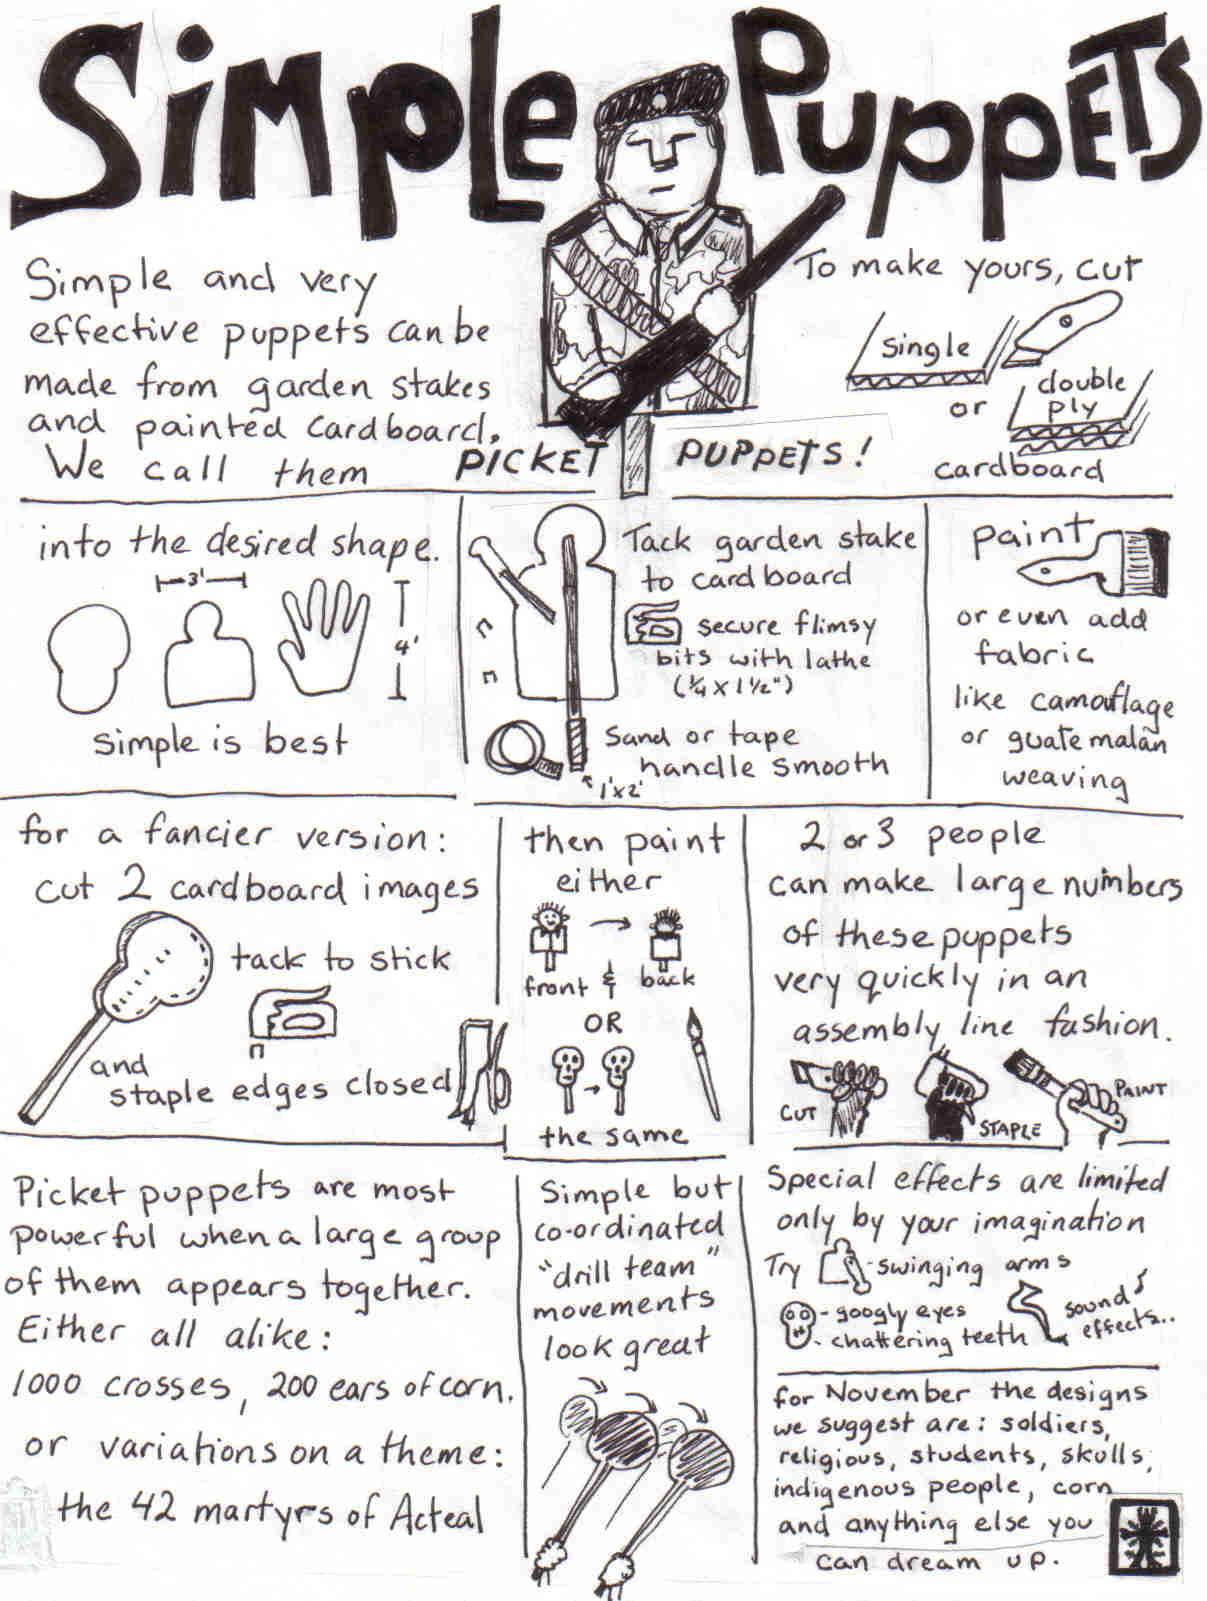 Simple Puppets
Simple and very
effective puppets can be
made from garden stakes
and painted cardboard.
We call them PICKET PUPPETS!
To make yours, cut
single
or double
ply
cardboard
into the desired shape.
3'
4'
simple is best
Tack garden stake
to cardboard
secure flimsy
bits with lathe
(¼ x 1½")
Sand or tape
handle smooth
1'x2'
paint
or even add
fabric
like camouflage
or guatemalan
weaving
for a fancier version:
cut 2 cardboard images
tack to stick
and
staple edges closed
then paint
either
front & back
OR
the same
2 or 3 people
can make large numbers
of these puppets
very quickly in an
assembly line fashion.
CUT
STAPLE
PAINT
Picket puppets are most
powerful when a large group
of them appears together.
Either all alike:
1000 crosses, 200 ears of corn.
or variations on a theme:
the 42 martyrs of Acteal
Simple but
co-ordinated
"drill team"
movements
look great
Special effects are limited
only by your imagination
Try - swinging arms
- googly eyes
- chattering teeth
sound
effects...
for November the designs
we suggest are: soldiers,
religious, students, skulls,
indigenous people, corn
and anything else you
can dream up.